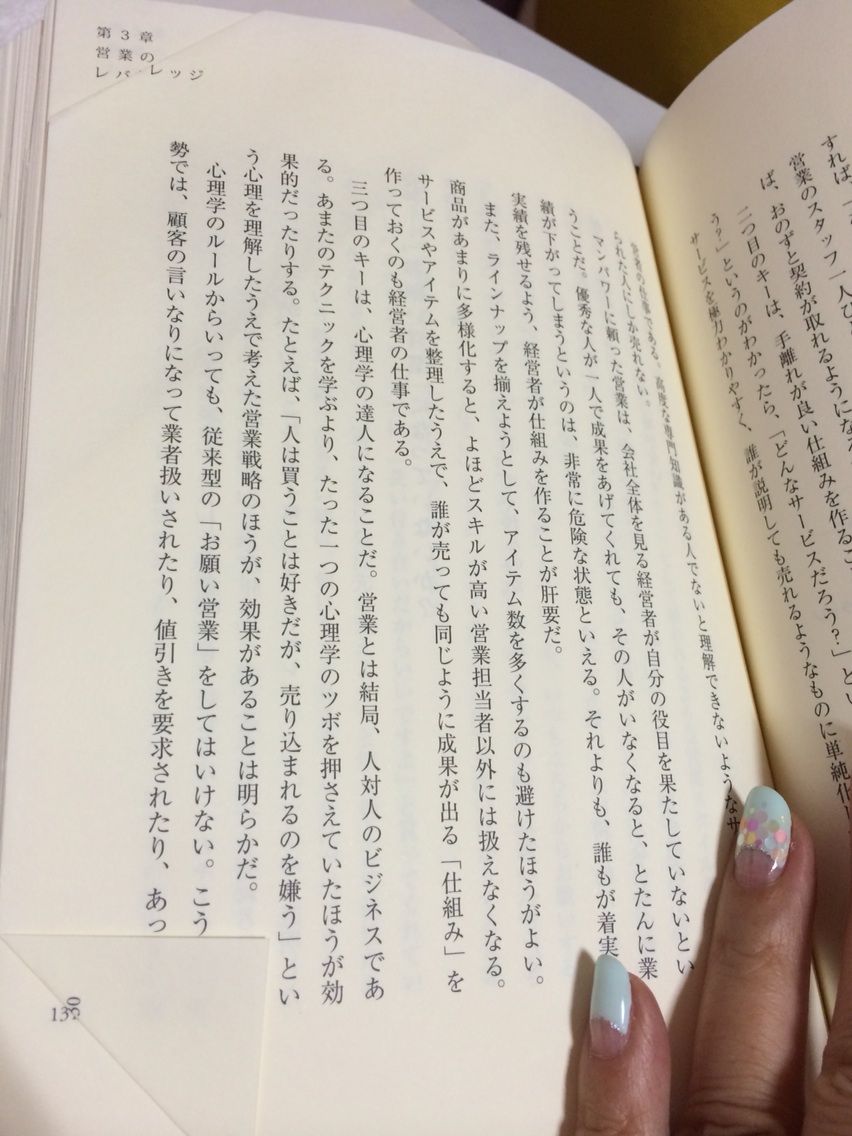 すれば、
営業のスタッフ一人ひと
ば、おのずと契約が取れるようになる
二つ目のキーは、手離れが良い仕組みを作るこ
う？」というのがわかったら、「どんなサービスだろう？」とい
サービスを極力わかりやすく、誰が説明しても売れるようなものに単純化し
第3章
営業の
レバレッジ
営者の仕事である。高度な専門知識がある人でないと理解できないようなサ
られた人にしか売れない。
マンパワーに頼った営業は、会社全体を見る経営者が自分の役目を果たしていないとい
うことだ。優秀な人が一人で成果をあげてくれても、その人がいなくなると、とたんに業
績が下がってしまうというのは、非常に危険な状態といえる。それよりも、誰もが着実
実績を残せるよう、経営者が仕組みを作ることが肝要だ。
また、ラインナップを揃えようとして、アイテム数を多くするのも避けたほうがよい。
商品があまりに多様化すると、よほどスキルが高い営業担当者以外には扱えなくなる。
サービスやアイテムを整理したうえで、誰が売っても同じように成果が出る「仕組み」を
作っておくのも経営者の仕事である。
三つ目のキーは、心理学の達人になることだ。営業とは結局、人対人のビジネスであ
る。あまたのテクニックを学ぶより、たった一つの心理学のツボを押さえていたほうが効
果的だったりする。たとえば、「人は買うことは好きだが、売り込まれるのを嫌う」とい
う心理を理解したうえで考えた営業戦略のほうが、効果があることは明らかだ。
心理学のルールからいっても、従来型の「お願い営業」をしてはいけない。こう
勢では、顧客の言いなりになって業者扱いされたり、値引きを要求されたり、あっ